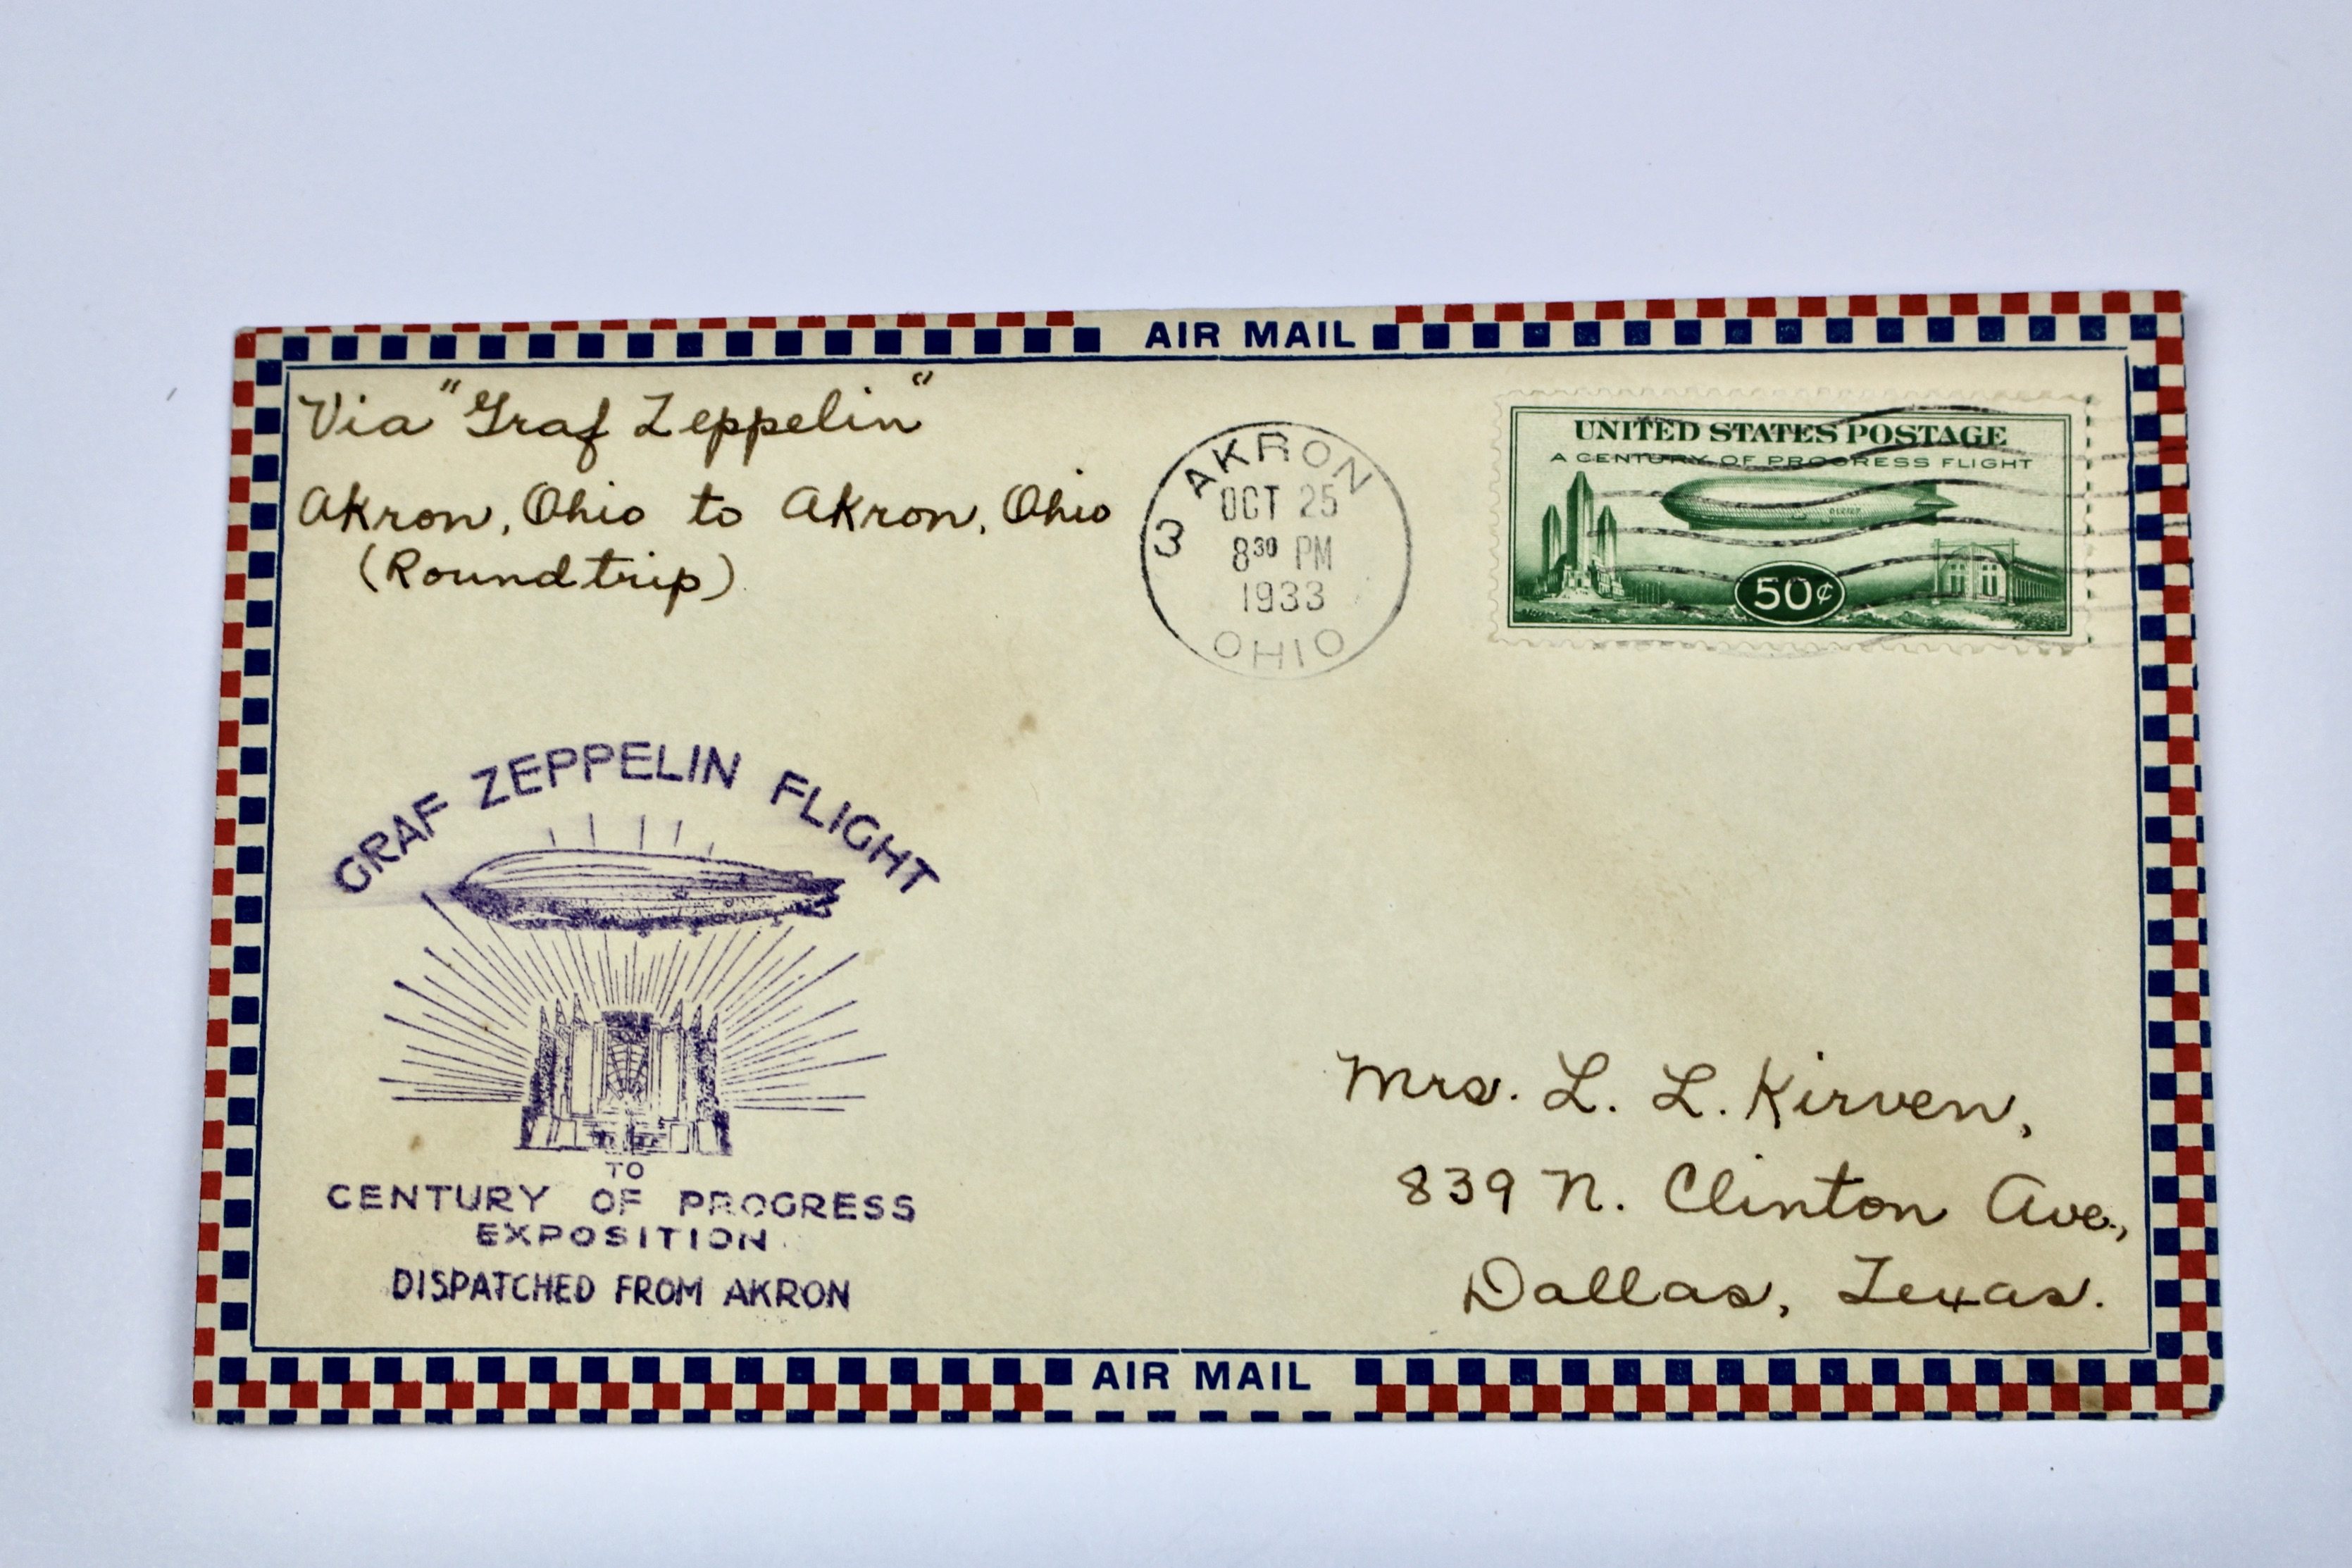 AIR MAIL
Via "Graf Zeppelin"
Akron, Ohio to Akron, Ohio
(Roundtrip)
3 AKRON
OCT 25
8³⁰ PM
1933
OHIO
UNITED STATES POSTAGE
A CENTURY OF PROGRESS FLIGHT
50¢
GRAF ZEPPELIN FLIGHT
TO
CENTURY OF PROGRESS
EXPOSITION
DISPATCHED FROM AKRON
Mrs. L. L. Kirven,
839 N. Clinton Ave.,
Dallas, Texas.
AIR MAIL